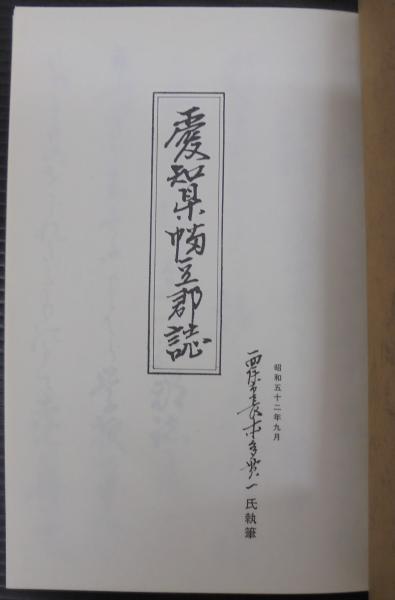 愛知県幡豆郡誌
昭和五十二年九月
西尾市長 一氏執筆